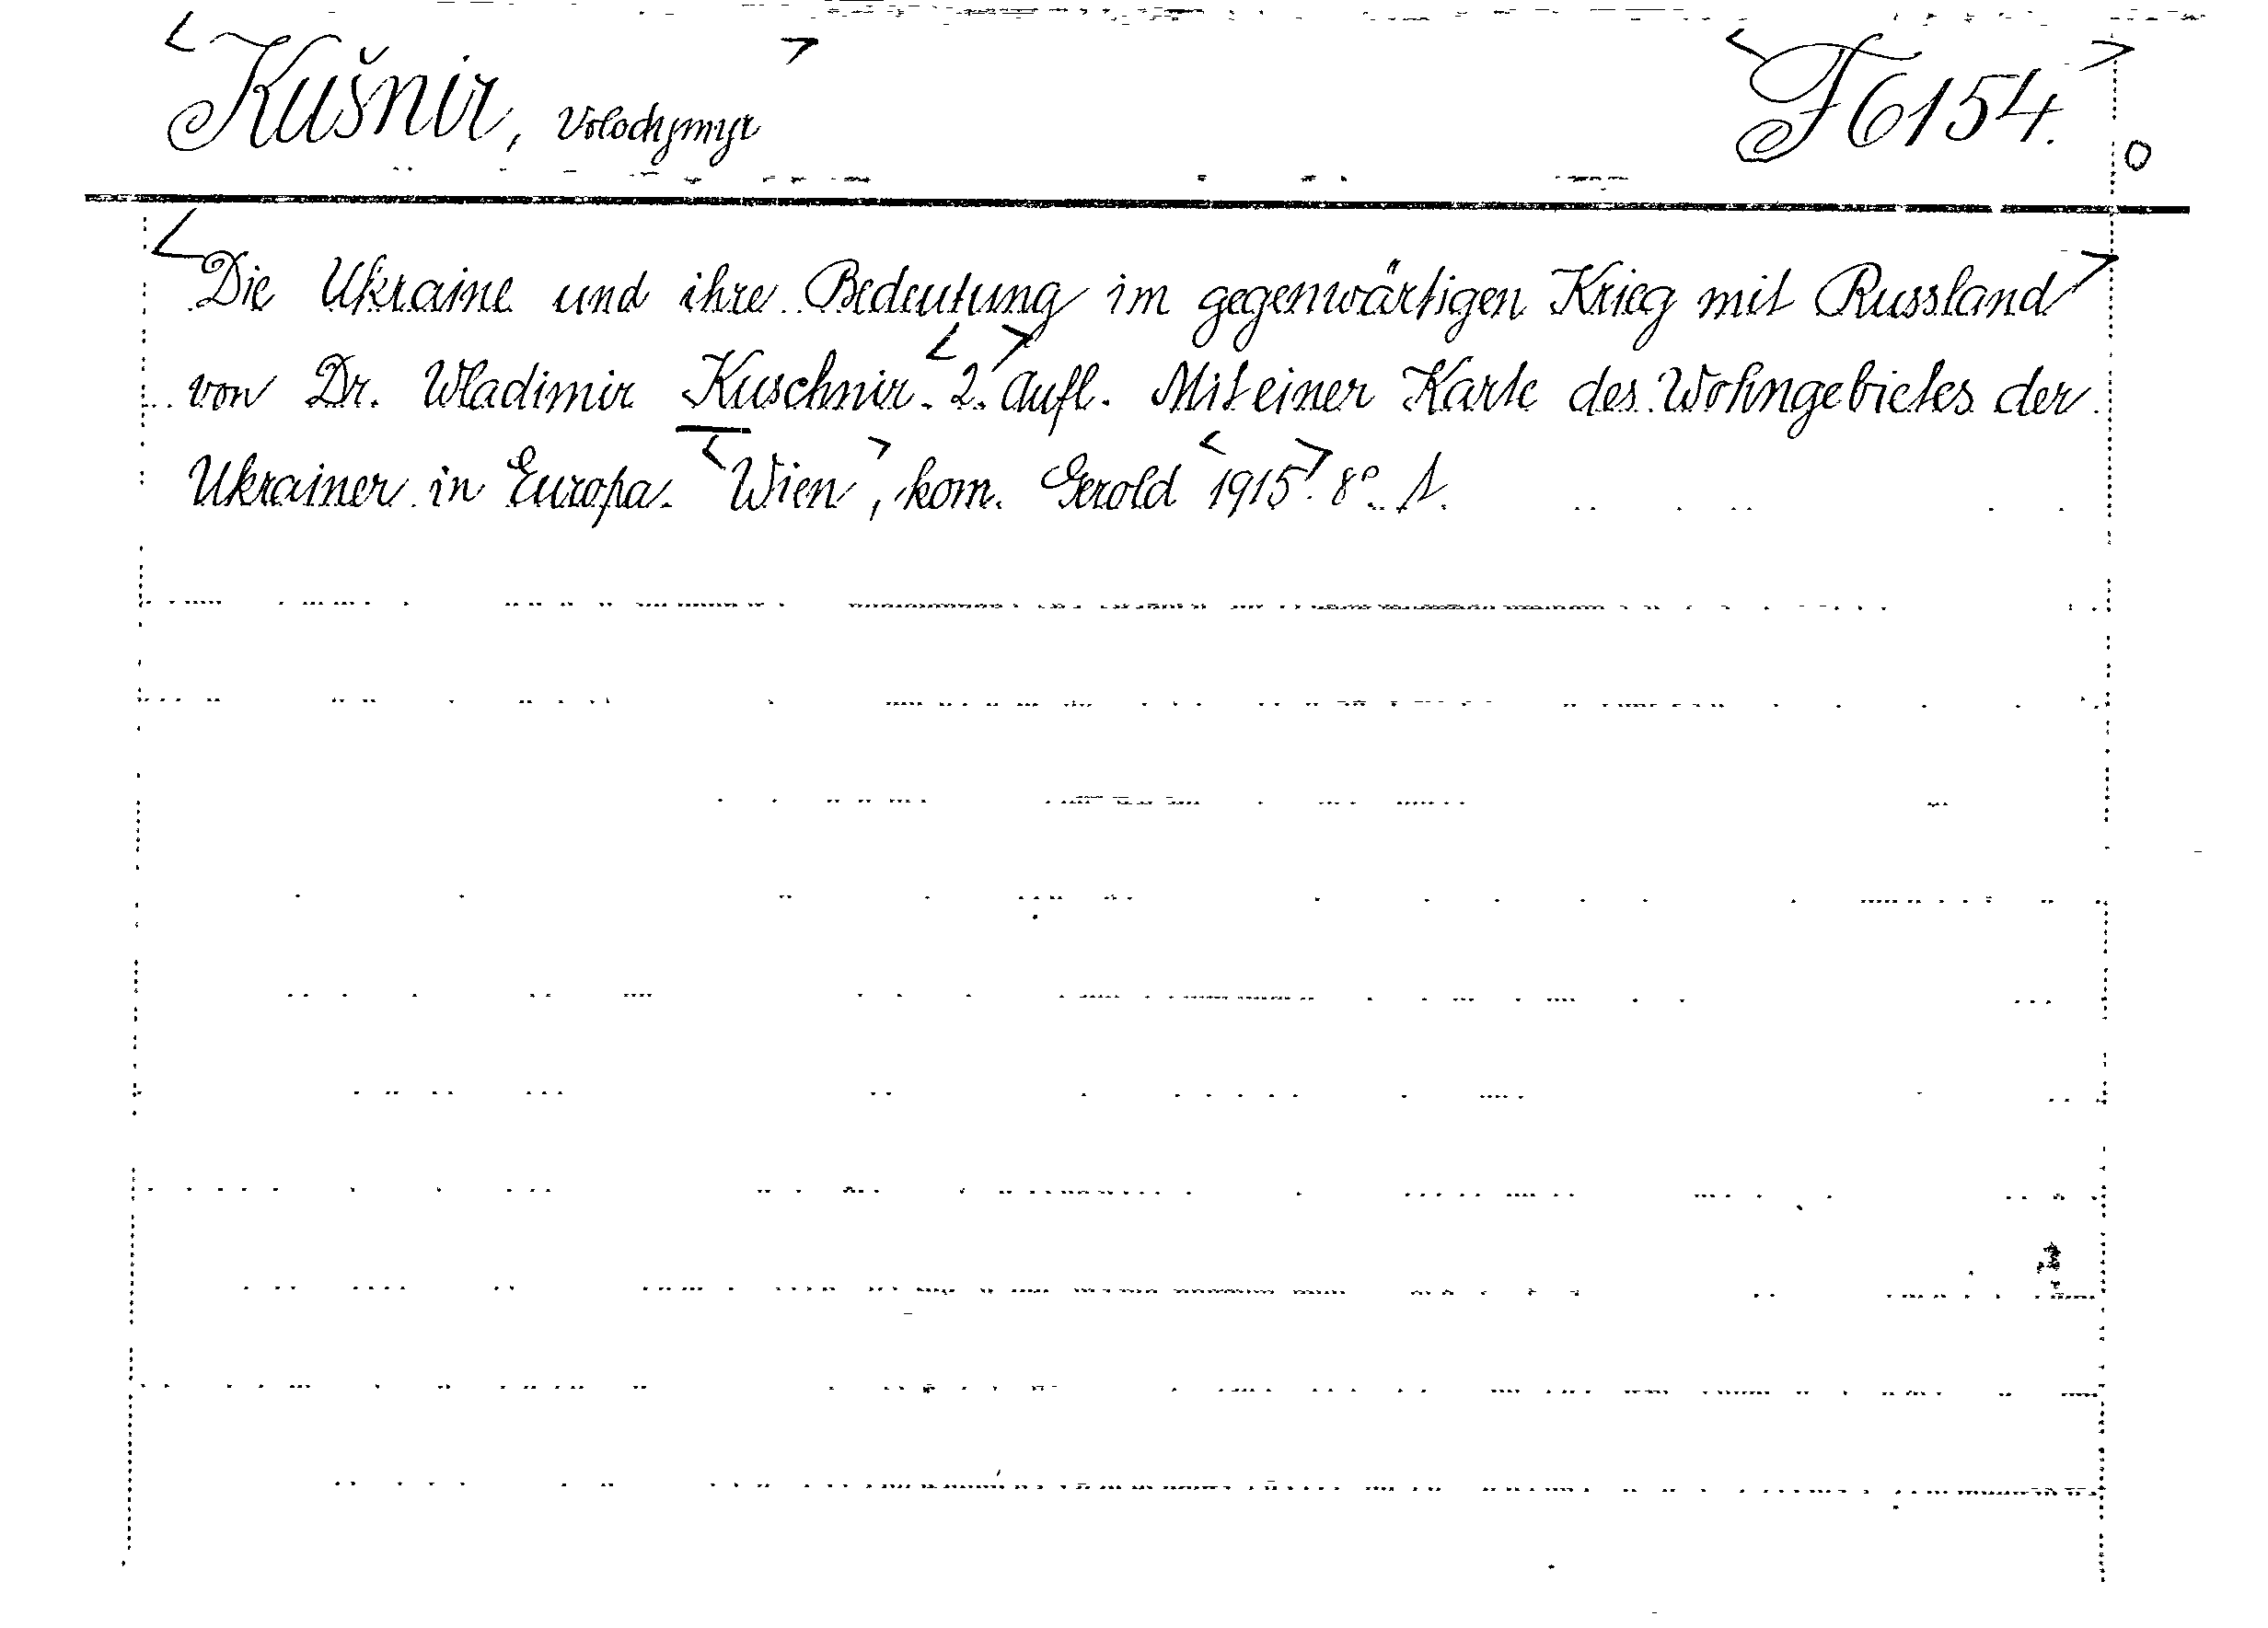 <Kušnir, Volodymyr> <F 6154.>
<Die Ukraine und ihre Bedeutung im gegenwärtigen Krieg mit Russland>
von Dr. Wladimir Kuschnir. <2.> Aufl. Mit einer Karte des Wohngebietes der
Ukrainer in Europa. <Wien>, kom. Gerold <1915>. 8° 1.